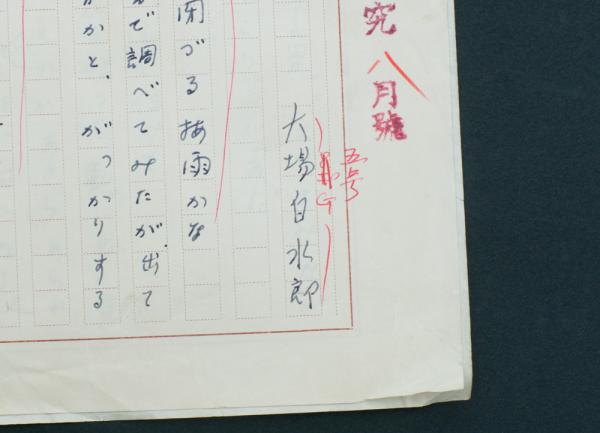 究 八月號
五号
大場白水郎
閉づる梅雨かな
で調べてみたが、出て
かと、がつかりする